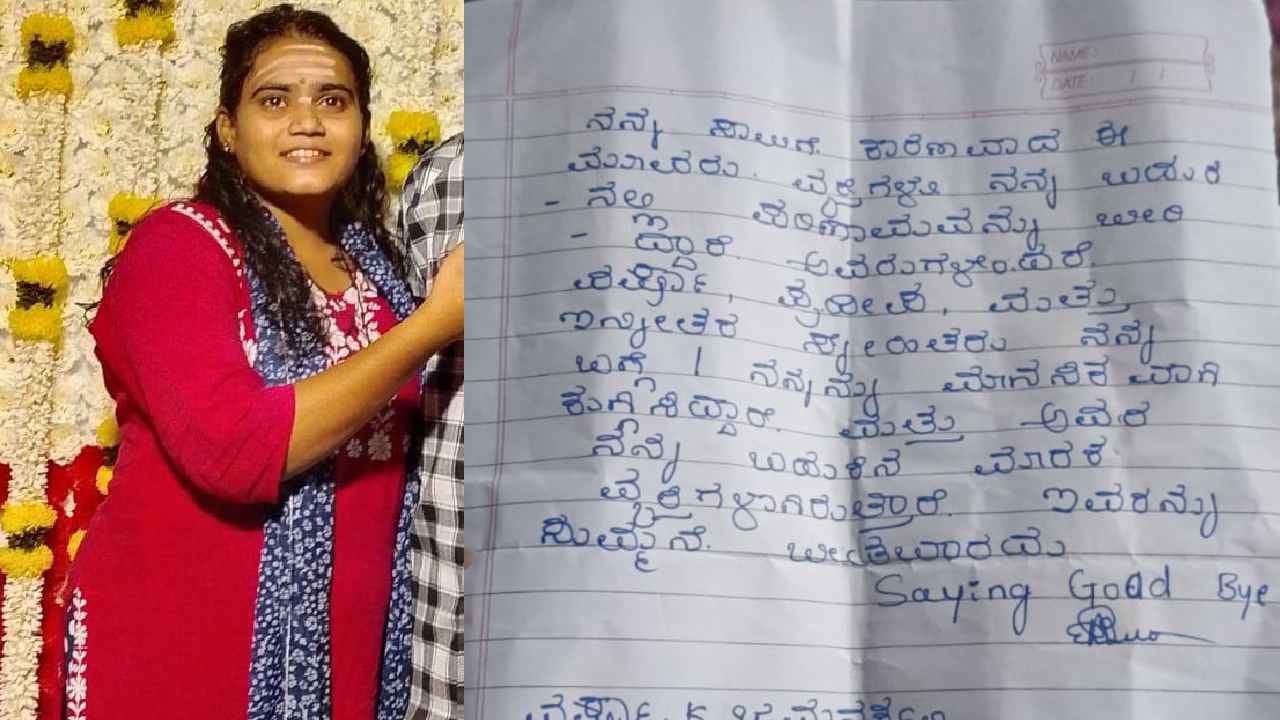 NAME:
DATE: / /
ನನ್ನ ಸಾವಿಗೆ ಕಾರಣವಾದ ಈ
ಮೂವರು. ವ್ಯಕ್ತಿಗಳು ನನ್ನ ಬದುಕಿ
- ನಲ್ಲಿ ಪರಿಣಾಮವನ್ನು ಬೀರಿ
- ದ್ದಾರೆ. ಅವರುಗಳೆಂದರೆ
ವರ್ಷಾ, ಪ್ರದೀಪ, ಮತ್ತು
ಇನ್ನೀತರ ಸ್ನೇಹಿತರು ನನ್ನ
ಬಗ್ಗೆ / ನನ್ನನ್ನು ಮಾನಸಿಕವಾಗಿ
ಕುಗ್ಗಿಸಿದ್ದಾರೆ. ಮತ್ತು ಅವರ
ನನ್ನ ಬದುಕಿನ ಮಾರಕ
ವ್ಯಕ್ತಿಗಳಾಗಿರುತ್ತಾರೆ. ಇವರನ್ನು
ಸುಮ್ಮನೆ. ಬೀಡಬಾರದು
Saying Good Bye